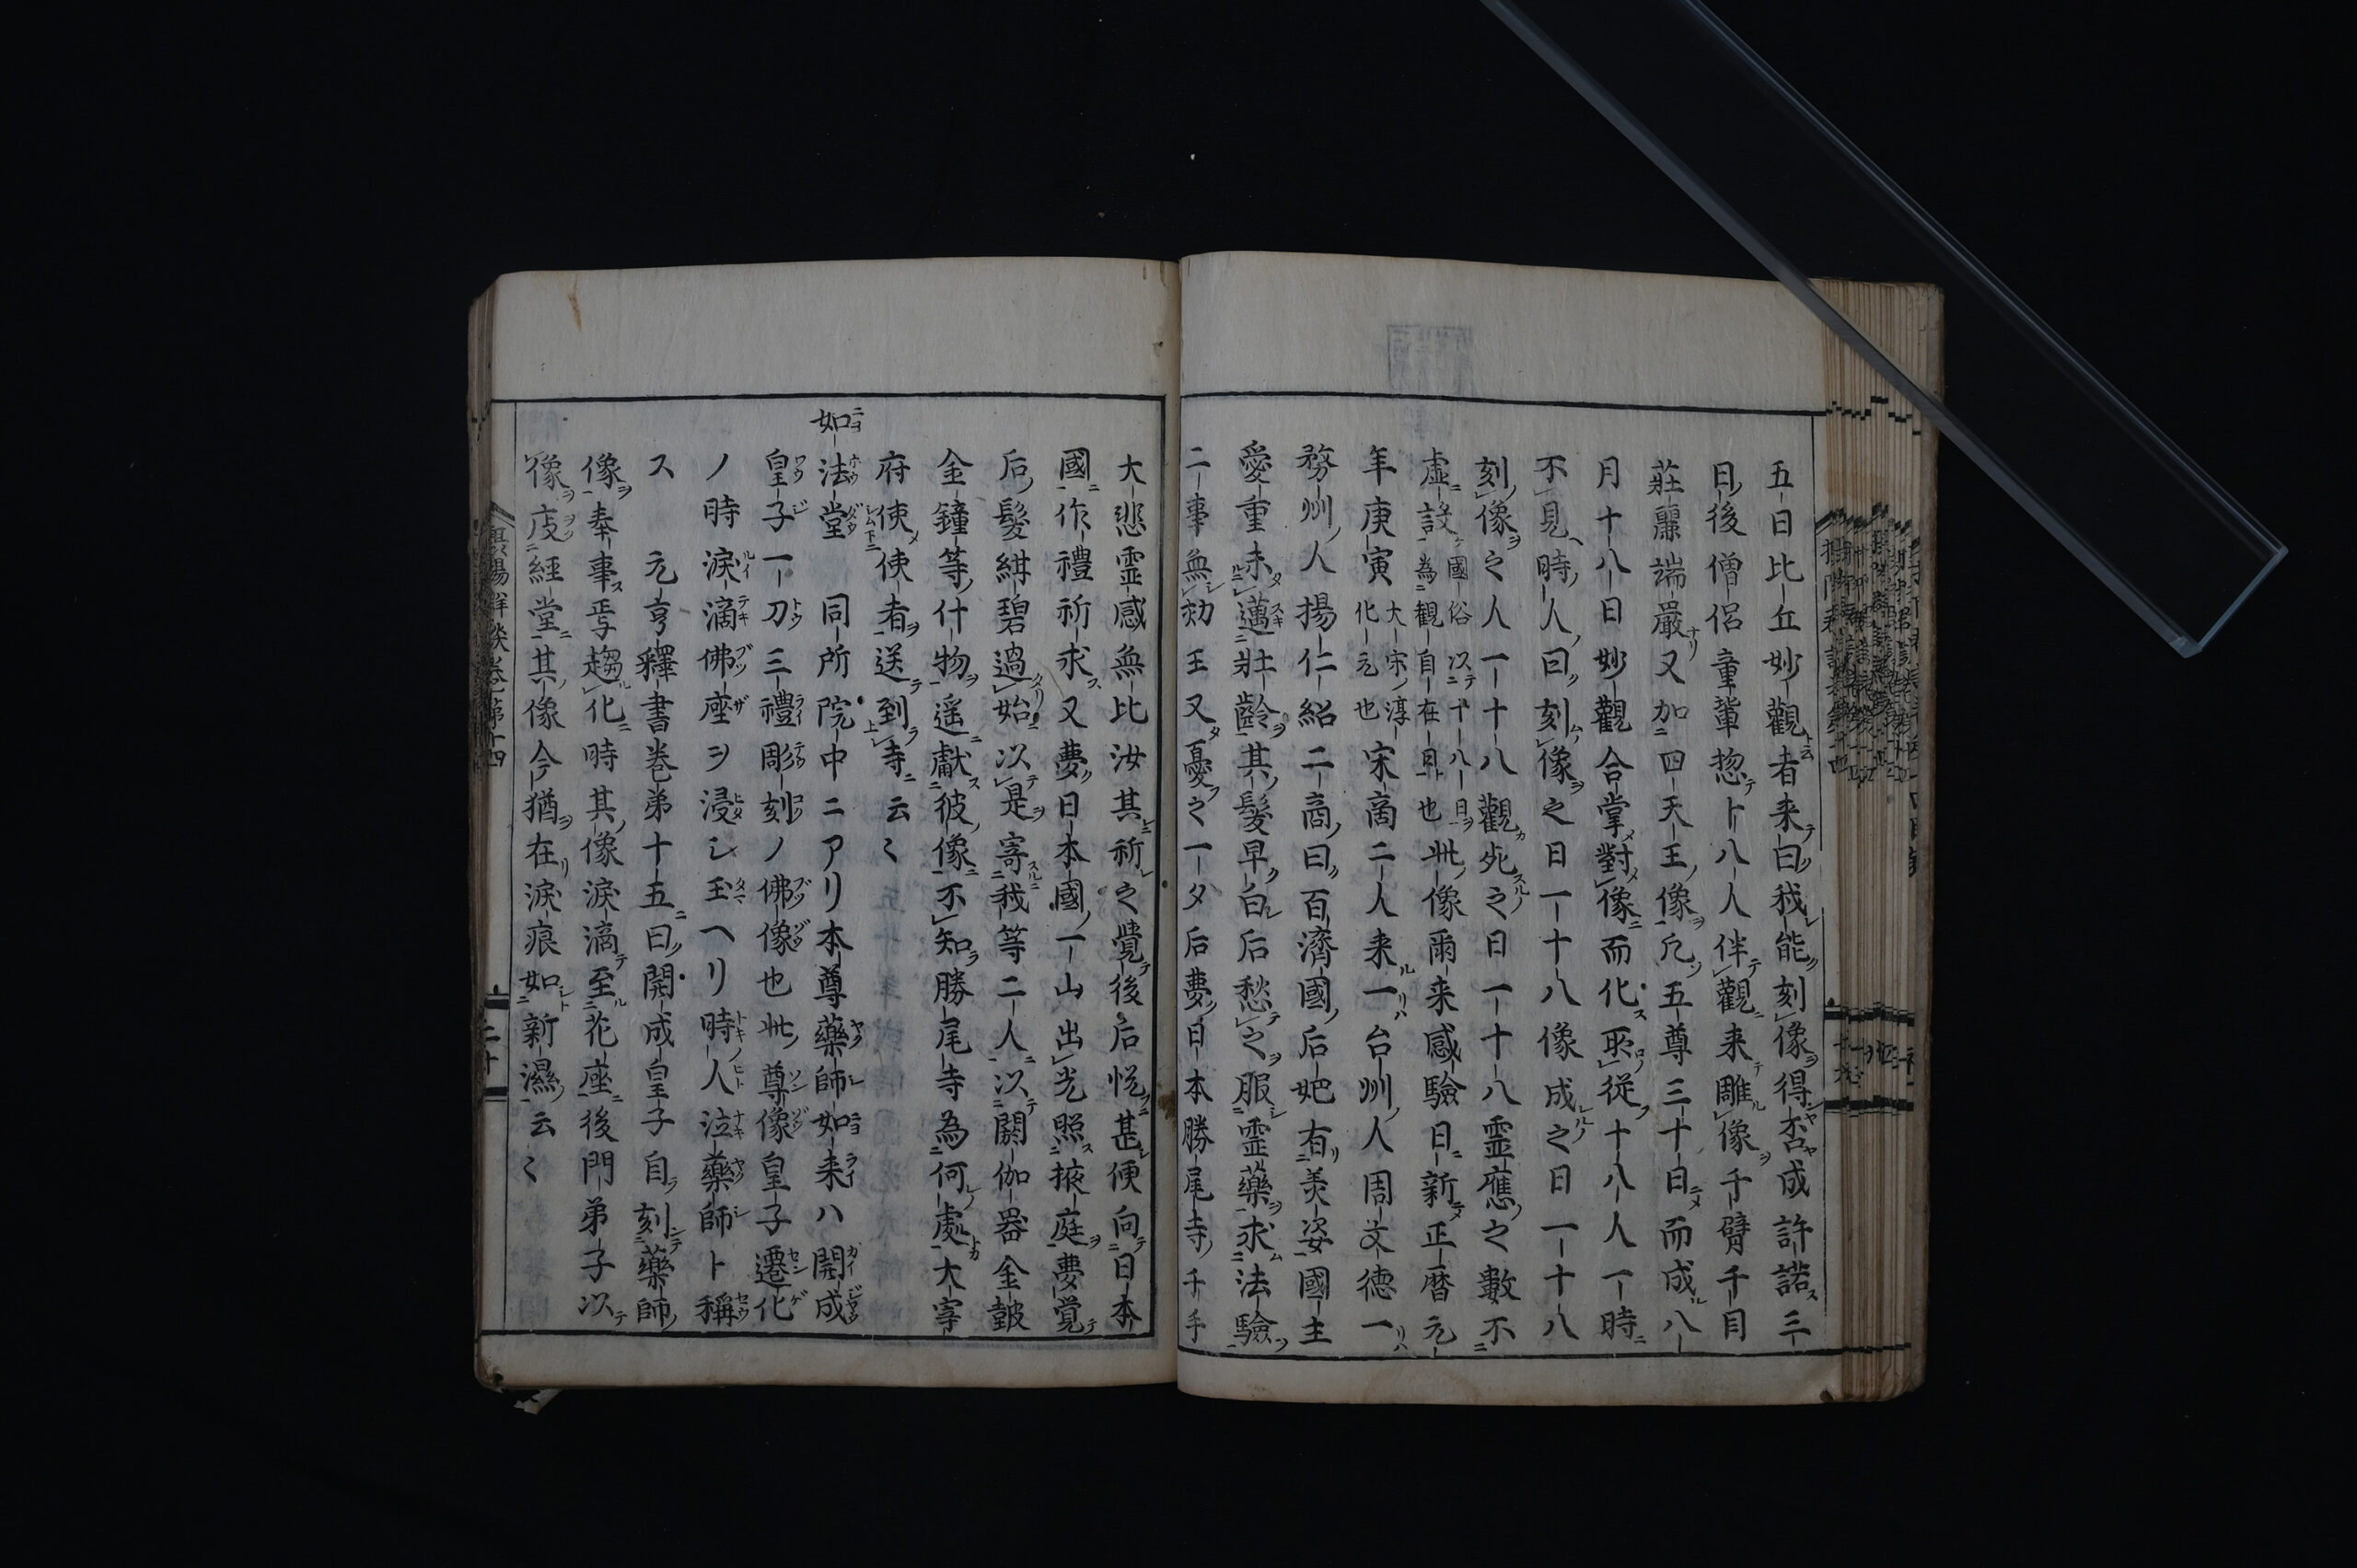 五日比丘妙觀者来曰我能刻像得否成許諾三
日後僧侶童輩惣十八人伴觀来雕像千臂千目
莊嚴端嚴又加四天王像凢五尊三十日而成八
月十八日妙觀合掌對像而化所從十八人一時
不見時人曰刻像之日一十八像成之日一十八
刻像之人一十八觀死之日一十八霊應之數不
虚設國俗以十八日為觀自在日也此像爾来感驗日新正暦元
年庚寅大宋淳化元也宋商二人来一台州人周文德一
務州人揚仁紹二商曰百濟國后妃有美姿國主
愛重未邁壯齡其髮早白后愁之服霊藥求法驗
二事無効王又憂之一夕后夢日本勝尾寺千手
大悲霊感無比汝其祈之覺後后悦甚便向日本
國作禮祈求又夢日本國一山出光照掖庭夢覚
后髮紺碧過始以是寄我等二人以閼伽器金鼓
金鐘等什物遥獻彼像不知勝尾寺為何處大宰
府使使者送到寺云〻
如法堂 同所院中ニアリ本尊藥師如来ハ開成
皇子一刀三禮彫刻ノ佛像也此尊像皇子遷化
ノ時涙滴佛座ヲ浸シ玉ヘリ時人泣藥師ト稱
ス 元亨釋書巻弟十五曰開成皇子自刻藥師
像奉事焉趨化時其像涙滴至花座後門弟子以
像庋経堂其像今猶在涙痕如新濕云〻